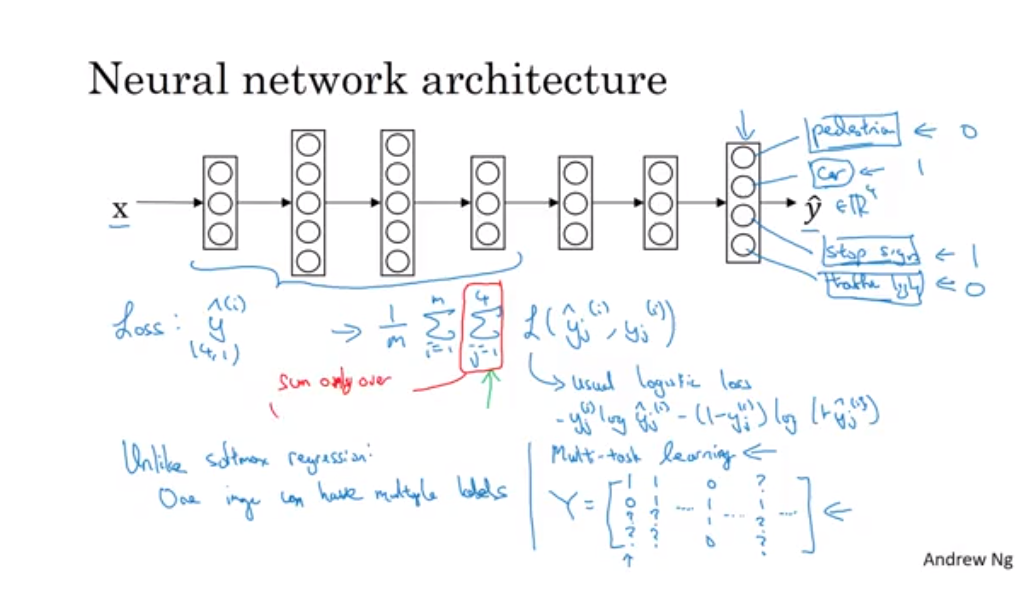 Neural network architecture
pedestrian ← 0
car ← 1
x
ŷ ∈ ℝ⁴
stop sign ← 1
← 0
Loss: ŷ^(i) (4,1) → 1/m Σ_{i=1}^{m} Σ_{j=1}^{4} L(ŷ_j^(i), y_j^(i))
sum only over
→ usual logistic loss
- y_j^(i) log ŷ_j^(i) - (1-y_j^(i)) log (1-ŷ_j^(i))
Unlike softmax regression:
One image can have multiple labels
Multi-task learning ←
Y = [
1 1 0 ?
0 1 ... 1 1
? ? 1 ... ? ...
? ? 0 ?
] ←
Andrew Ng